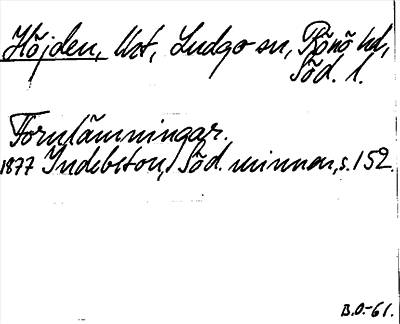 Höjden, Urt, Ludgo sn, Rönö hd,
Söd. l.
Fornlämningar.
1877 Indebetou, Söd. minnen, s. 152.
B.O.-61.